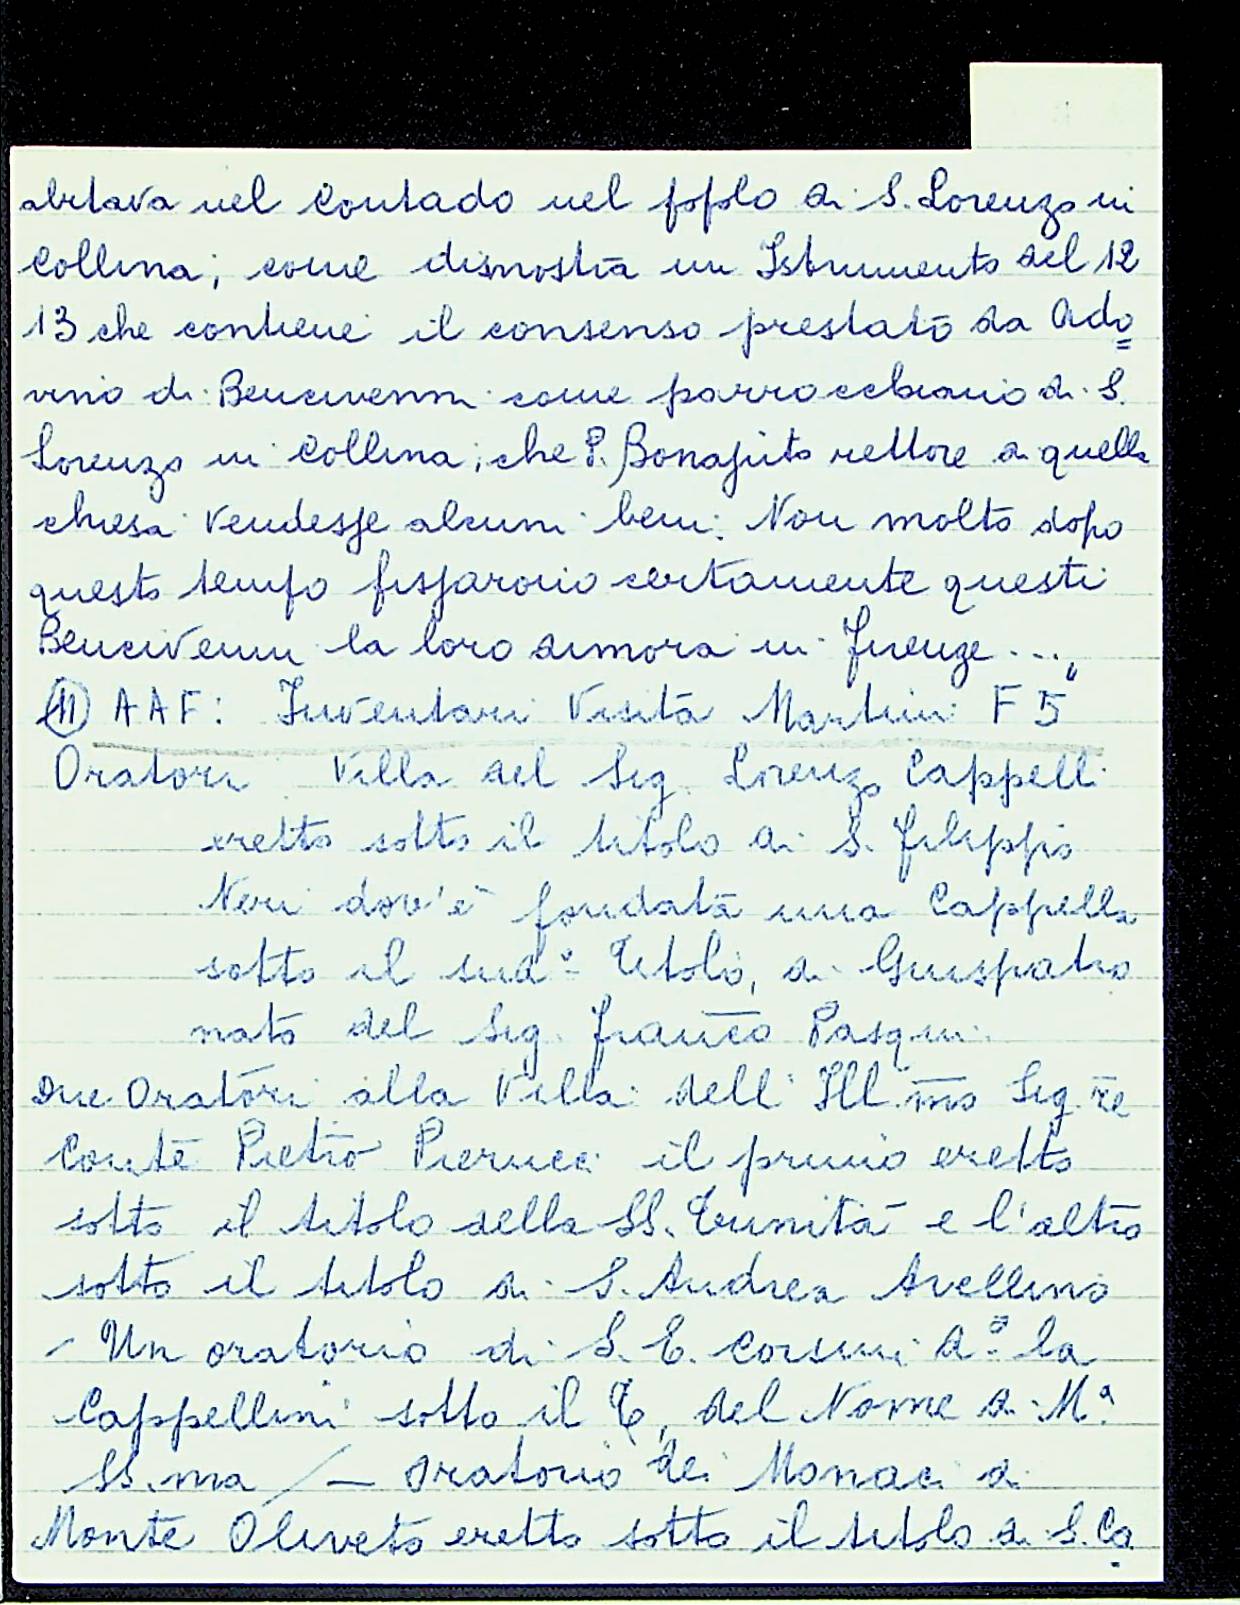 abitava nel Contado nel popolo di S. Lorenzo in
Collina; come dimostra un Istrumento del 12
13 che contiene il consenso prestato da Ado=
vino di Bencivenni come parrocchiano di S.
Lorenzo in Collina; che P. Bonajuto rettore di quella
chiesa vendesse alcuni beni. Non molto dopo
questo tempo fissarono certamente questi
Bencivenni la loro dimora in Firenze ..."
(11) AAF: Inventari Visita Martini F 5
Oratori Villa del Sig. Lorenzo Cappelli
eretto sotto il titolo di S. Filippo
Neri dov'è fondata una Cappella
sotto il sud.º Titolo, di Giuspatro
nato del Sig. Franco Pasqui.
Due Oratori alla Villa dell' Ill.mo Sig.re
Conte Pietro Pierucci il primo eretto
sotto il titolo della SS. Trinità e l'altro
sotto il titolo di S. Andrea Avellino
- Un oratorio di S. E. Corsini d.º la
Cappellina sotto il T. del Nome di M.ª
SS.ma / — Oratorio dei Monaci di
Monte Oliveto eretto sotto il titolo di S. Ca